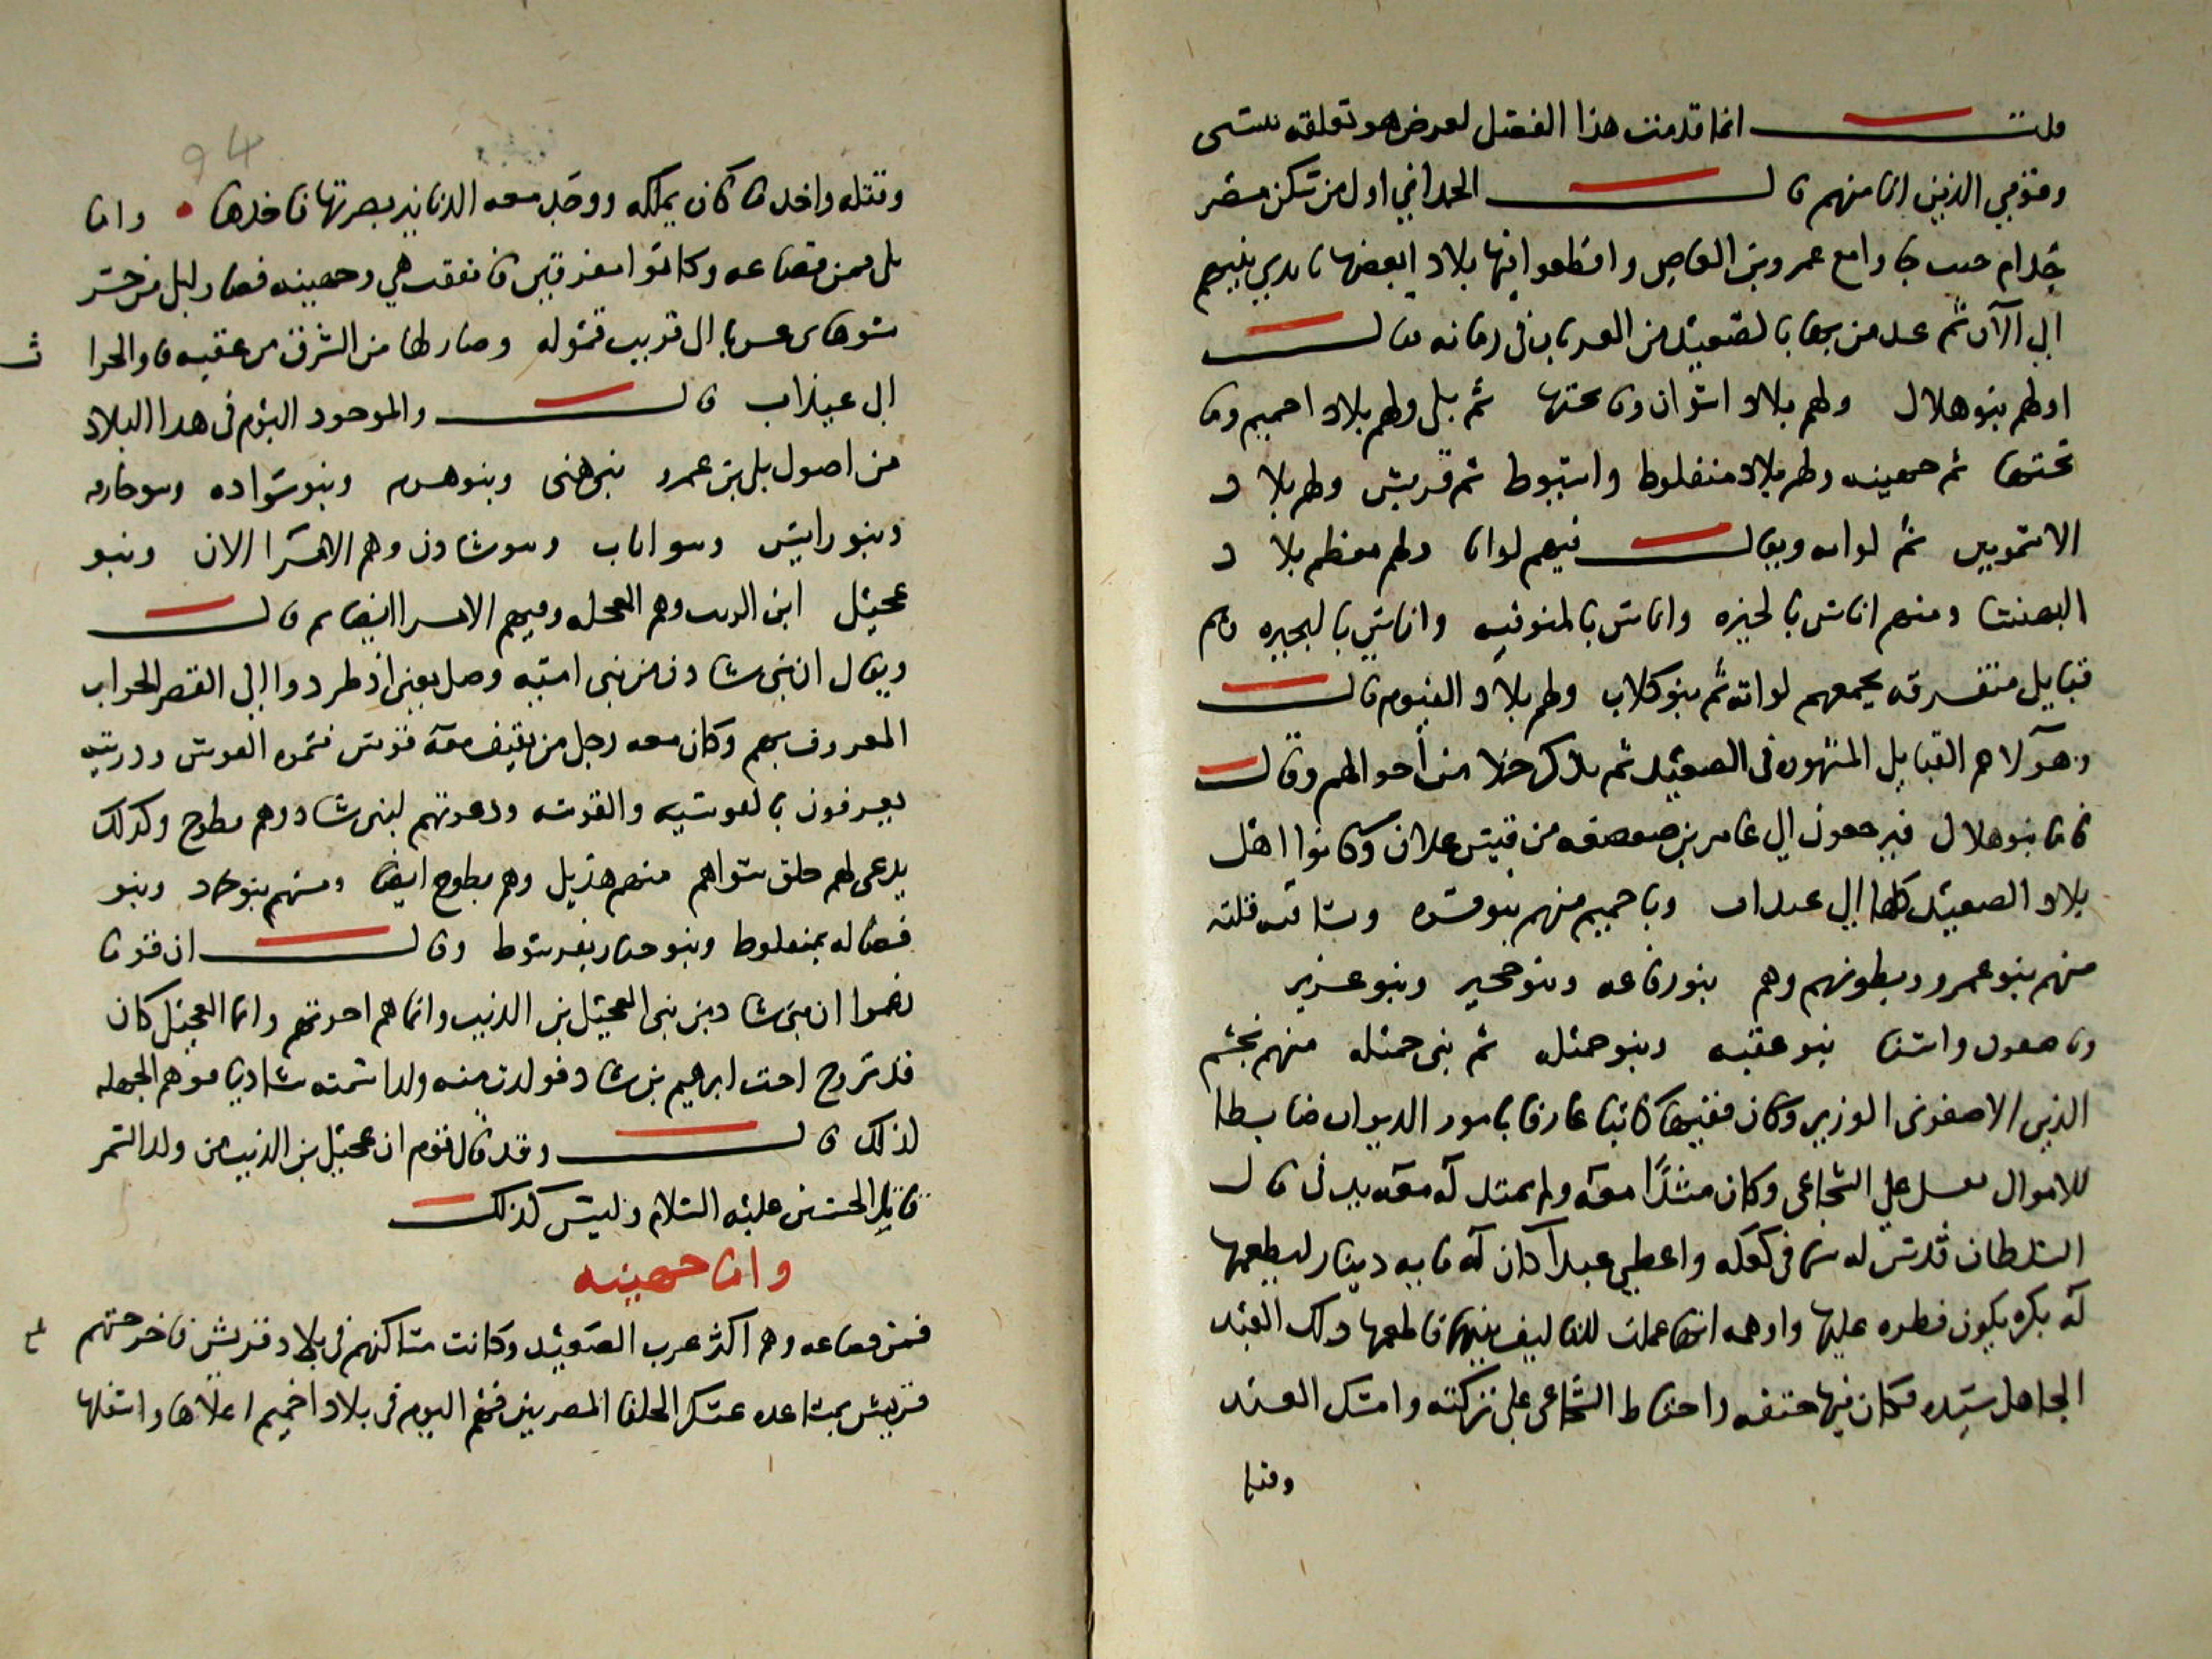 قلت انما قدمت هذا الفصل لغرض هو تعلقه بنسبي
وقومي الذين انا منهم قال الحمداني اول من سكن مصر
جذام حيث جاوا مع عمرو بن العاص واقطعوا فيها بلاد ابعضها بايدي بنيهم
الى الآن ثم عد من بها بالصعيد من العربان في زمانه فقال
اولهم بنو هلال ولهم بلاد اسوان وما تحتها ثم بلى ولهم بلاد اخميم وما
تحتها ثم جهينه ولهم بلاد منفلوط واسيوط ثم قريش ولهم بلاد
الاشمونين ثم لواته ويقال فيهم لواتا ولهم معظم بلاد
البهنسا ومنهم اناس بالجيزه واناس بالمنوفيه واناس بالبحيره وهم
قبايل متفرقه يجمعهم لواته ثم بنو كلاب ولهم بلاد الفيوم قال
وهؤلا هم القبايل المشهوره في الصعيد ثم نذكر جملا من أحوالهم وقال
فاما بنو هلال فيرجعون الى عامر بن صعصعه من قيس عيلان وكانوا اهل
بلاد الصعيد كلها الى عيذاب وباخميم منهم بنو قره وبساقيه قلته
منهم بنو عمرو وبطونهم وهم بنو رفاعه وبنو حجير وبنو عزيز
وباصفون واسنا بنو عقبه وبنو جميله ثم بنى جميله منهم نجم
الدين الاصفونى الوزير وكان فقيها كاتبا عارفا بامور الديوان ضابطا
للاموال ثقل على الشجاعى وكان مشدًا معه ولم تمتد له معه يد في مال
السلطان فدس له سما في كعكه واعطى عبداً كان له مايه دينار ليطعمها
له بكره يكون فطره عليها واوهمه انها عملت للتاليف بينهما فاطعمها ذلك العبد
الجاهل سيده فكان فيها حتفه واحتاط الشجاعى على تركته وامسك العبد
وقتله
وقتله واخذ ما كان يملكه ووجد معه الدنانير بصرتها فاخذها • واما
بلى فمن قضاعه وكانوا مفرقين فاتفقت هي وجهينه فصار لبلى من جسر
سوهاى غربا الى قريب قموله وصار لها من الشرق من عقبه قاو الخراب
الى عيذاب قال والموجود اليوم في هذا البلاد
من اصول بلى بن عمرو بنو هنى وبنو هرم وبنو سواده وبنو خارفه
وبنو رايس وبنو اناب وبنو شادن وهم الامرا الان وبنو
عجيل ابن الذيب وهم العجله وفيهم الامرا ايضا ثم قال
ويقال ان بنى شاد من بنى اميه وصل بعض اذ طردوا الى القصر الخراب
المعروف بهم وكان معه رجل من ثقيف معه قوس فسموه القوس وذريته
يعرفون بالقوسيه والقوسه ودعوتهم لبنى شاد وهم بطوخ وكذلك
يدعى لهم خلق سواهم منهم هذيل وهم بطوخ ايضا ومنهم بنو حماد وبنو
فضاله بمنفلوط وبنو خيار بفرشوط وقال ان قوما
زعموا ان بنى شاد من بنى العجيل بن الذيب وانما هم اخوتهم وانما العجيل كان
قد تزوج اخت ابرهيم بن شاد فولدت منه ولدا سمته شاديا فوهم الجهله
لذلك قال وقد قال قوم ان عجيل بن الذيب من ولد الشمر
قاتل الحسين عليه السلام وليس كذلك
واما جهينه
فمن قضاعه وهم اكثر عرب الصعيد وكانت مساكنهم في بلاد قريش فاخرجتهم
قريش بمساعده عسكر الخلفا المصريين فهم اليوم في بلاد اخميم اعلاها واسفلها
94